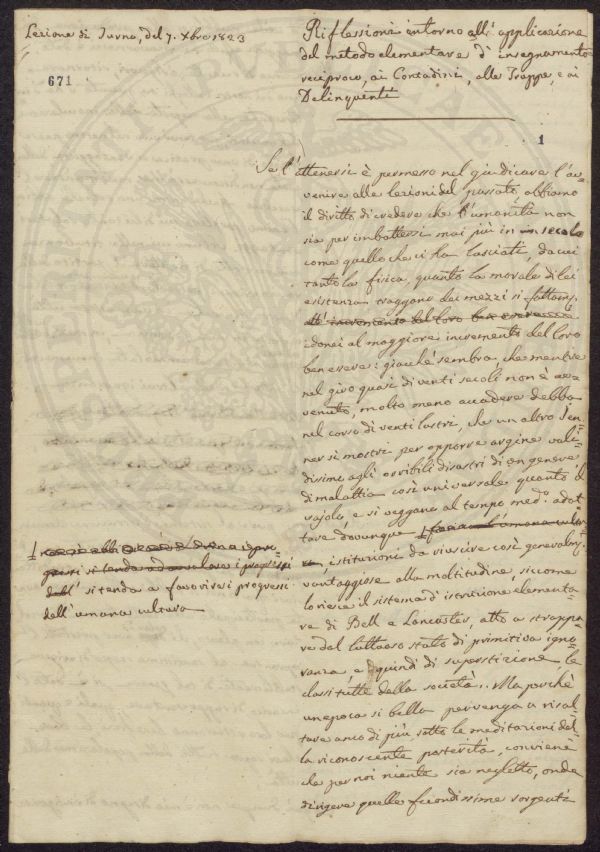 Lezione di Turno, del 7. Xbre 1823
671
Riflessioni intorno all'applicazione
del metodo elementare d'insegnamento
reciproco, ai Contadini, alle Truppe, e ai
Delinquenti
1
Se l'attenersi è permesso nel giudicare l'av-
venire alle lezioni del passato abbiamo
il diritto di credere che l'umanità non
sia per imbattersi mai più in un secolo
come quello che ci ha lasciati, da cui
tanto la fisica, quanto la morale di lei
esistenza traggano dei mezzi sì
incremento del loro
idonei al maggiore incremento del loro
benessere: giacché sembra che mentre
nel giro quasi di venti secoli non è av-
venuto, molto meno accadere debba
nel corso di venti lustri, che un altro Jen-
ner si mostri per opporre argine vali-
dissimo agli orribili disastri di un genere
di malattia così universale quanto il
vajolo, e si veggano al tempo med.o adot-
tare dovunque 1 l'umana
istituzioni da riuscire così generalm.
vantaggiose alla moltitudine, siccome
lo riesce il sistema d'istruzione elementa-
re di Bell e Lancaster, atto a strappa-
re dal luttuoso stato di primitiva igno-
ranza, e quindi di superstizione le
classi tutte della società. Ma perchè
un'epoca sì bella pervenga a risal-
tare anco di più sotto le meditazioni del-
la riconoscente posterità, conviene
che per noi niente sia negletto, onde
dirigere quelle fecondissime sorgenti
1
si tenda ad i progressi
dell' si tenda a favorire i progressi
dell'umana cultura